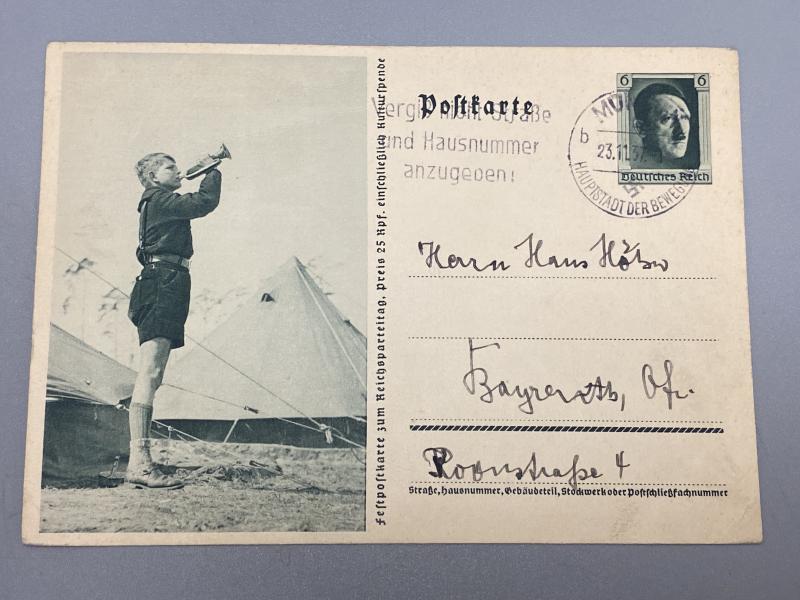 Festpostkarte zum Reichsparteitag, Preis 25 Rpf. einschließlich Kulturspende
Postkarte
Vergiß nicht Straße
und Hausnummer
anzugeben!
b
23.11.37
HAUPTSTADT DER BEWEGUNG
6 6
Deutsches Reich
Herrn Hans
Bayreuth, Ofr.
Roonstraße 4
Straße, Hausnummer, Gebäudeteil, Stockwerk oder Postschließfachnummer